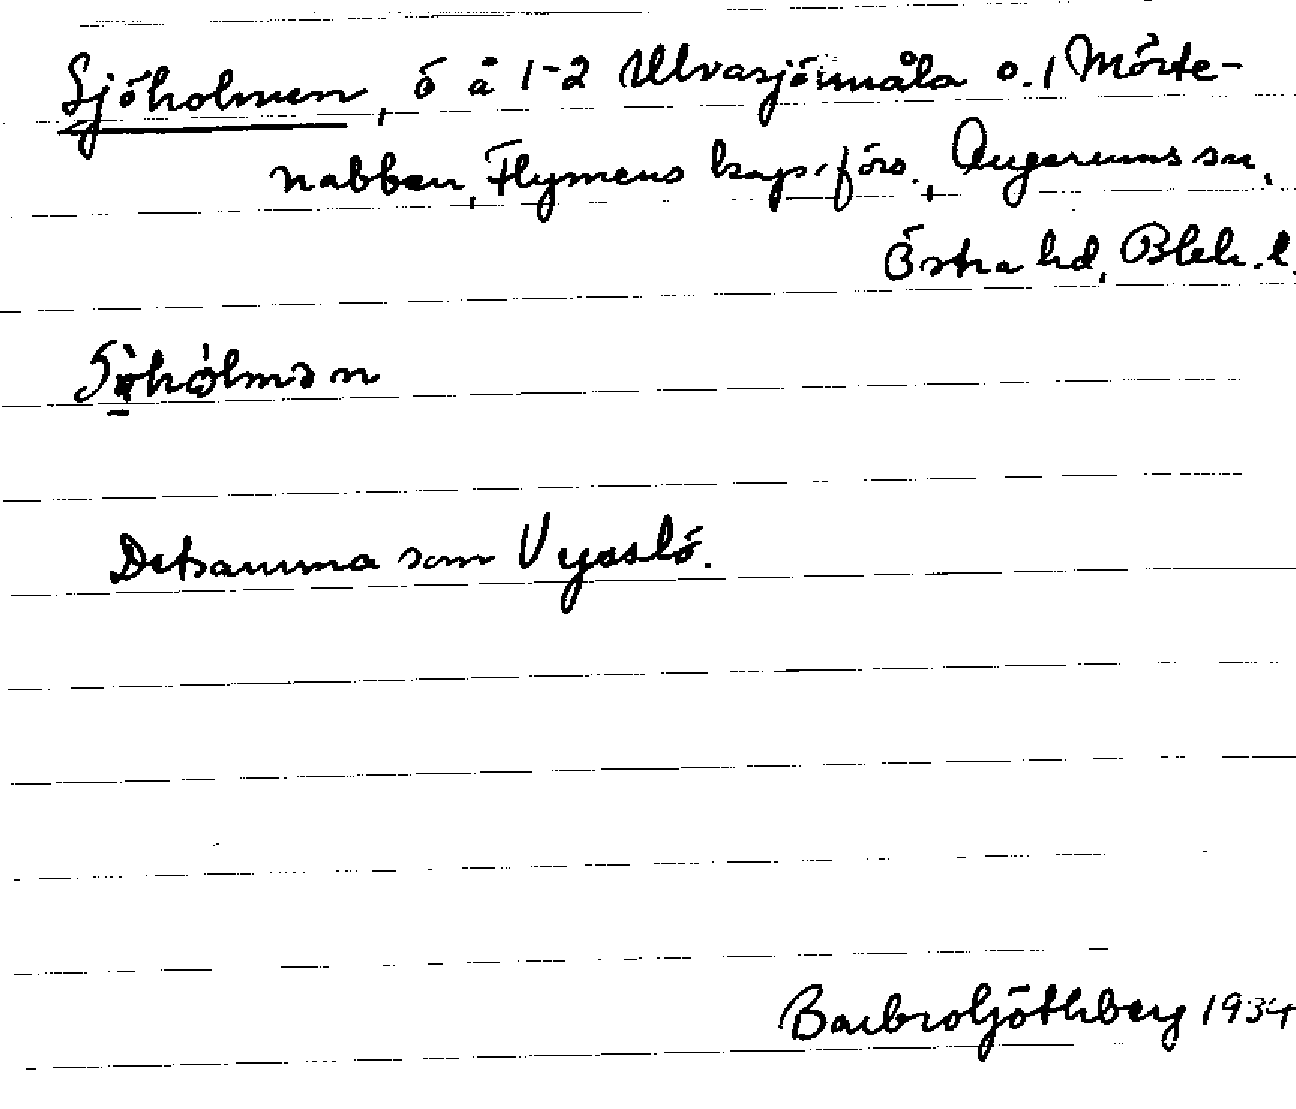 Sjöholmen, ö å 1-2 Ulvasjömåla o. 1 Mörte-
nabben, Flymens kap.förs., Augerums sn,
Östra hd, Blek. l.
Detsamma som Vysslö.
Barbro Göthberg 1934